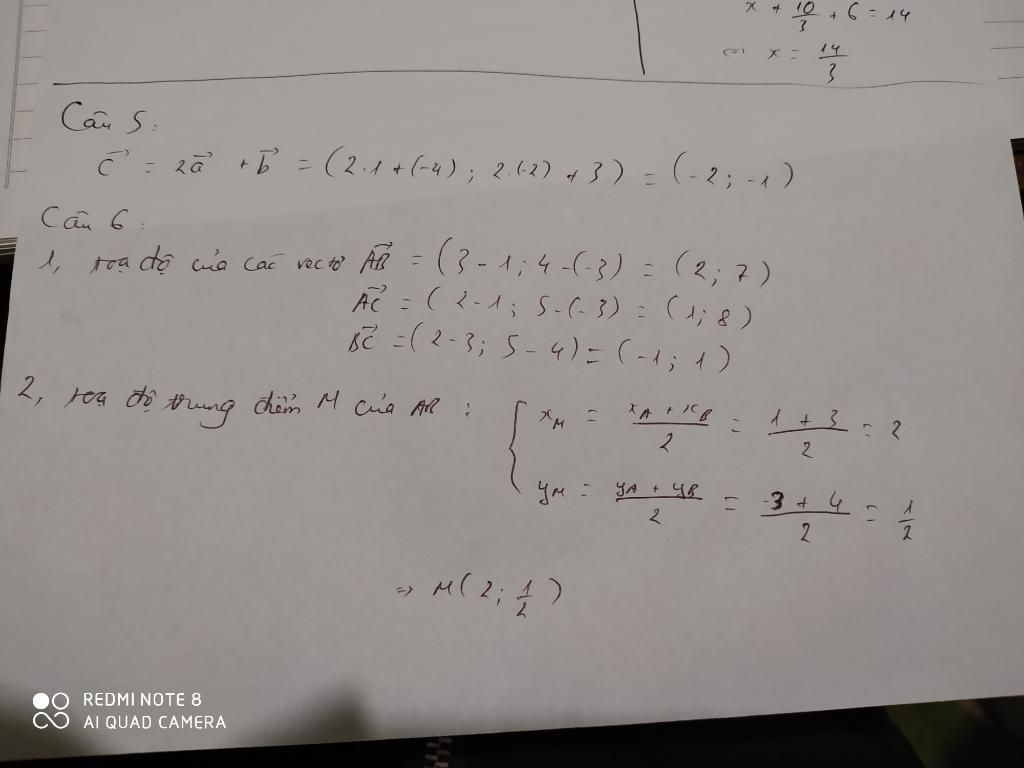 x + 10/3 + 6 = 14
<=> x = 14/3
Câu 5:
c⃗ = 2a⃗ + b⃗ = (2.1+(-4); 2.(-2) + 3) = (-2; -1)
Câu 6:
1, toạ độ của các vectơ AB⃗ = (3 - 1; 4 -(-3) = (2; 7)
AC⃗ = (2-1; 5-(-3) = (1; 8)
BC⃗ = (2-3; 5-4) = (-1; 1)
2, toạ độ trung điểm M của AB: { x_M = (x_A + x_B)/2 = (1 + 3)/2 = 2
y_M = (y_A + y_B)/2 = (-3 + 4)/2 = 1/2
=> M(2; 1/2)
REDMI NOTE 8
AI QUAD CAMERA